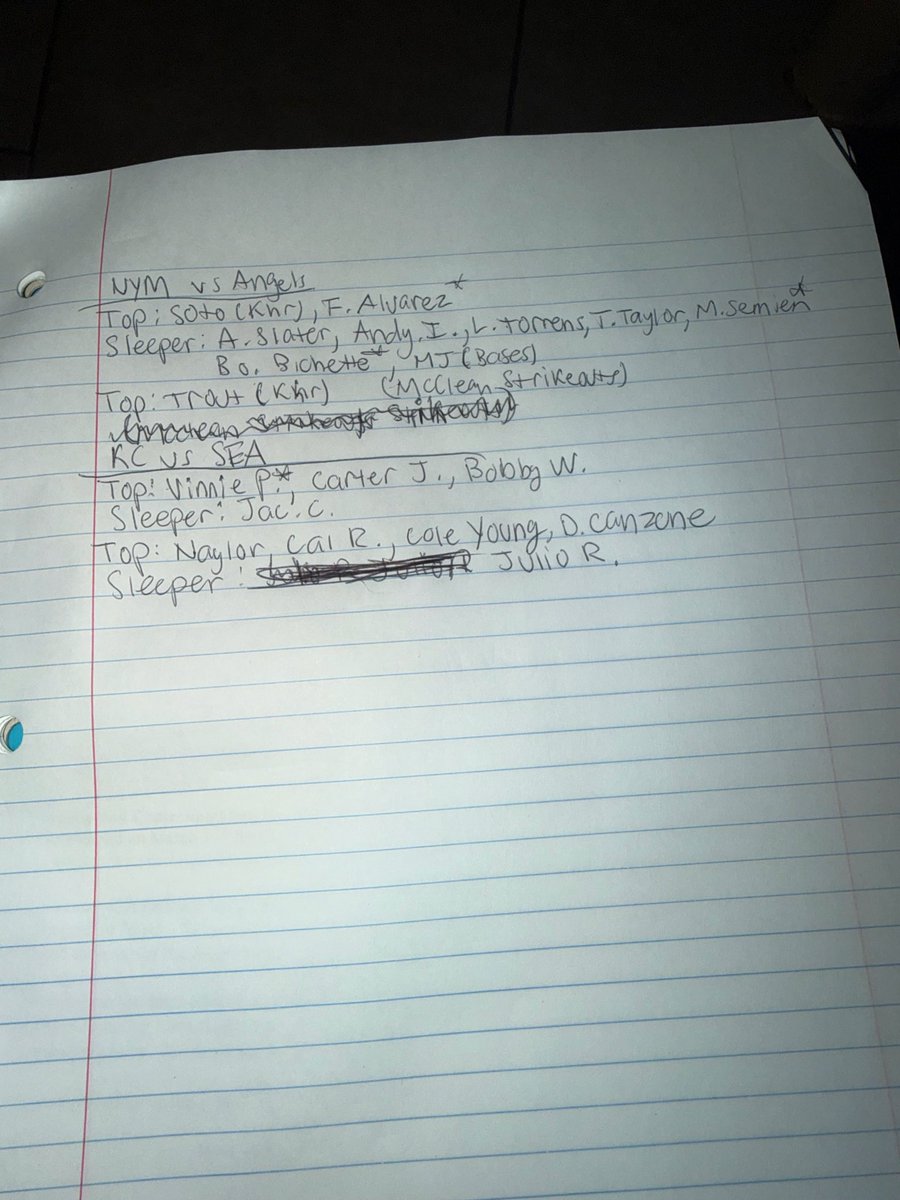 NYM vs Angels
Top: Soto (Khr), F. Alvarez*
Sleeper: A. Slater, Andy. I., L. Torrens, T. Taylor, M. Semien*
Bo. Bichette*, MJ (Bases)
Top: Trout (Khr) (McClean Strikeouts)
KC vs SEA
Top: Vinnie P.*, Carter J., Bobby W.
Sleeper: Jac. C.
Top: Naylor, Cal R., Cole Young, D. Canzone
Sleeper: Julio R.